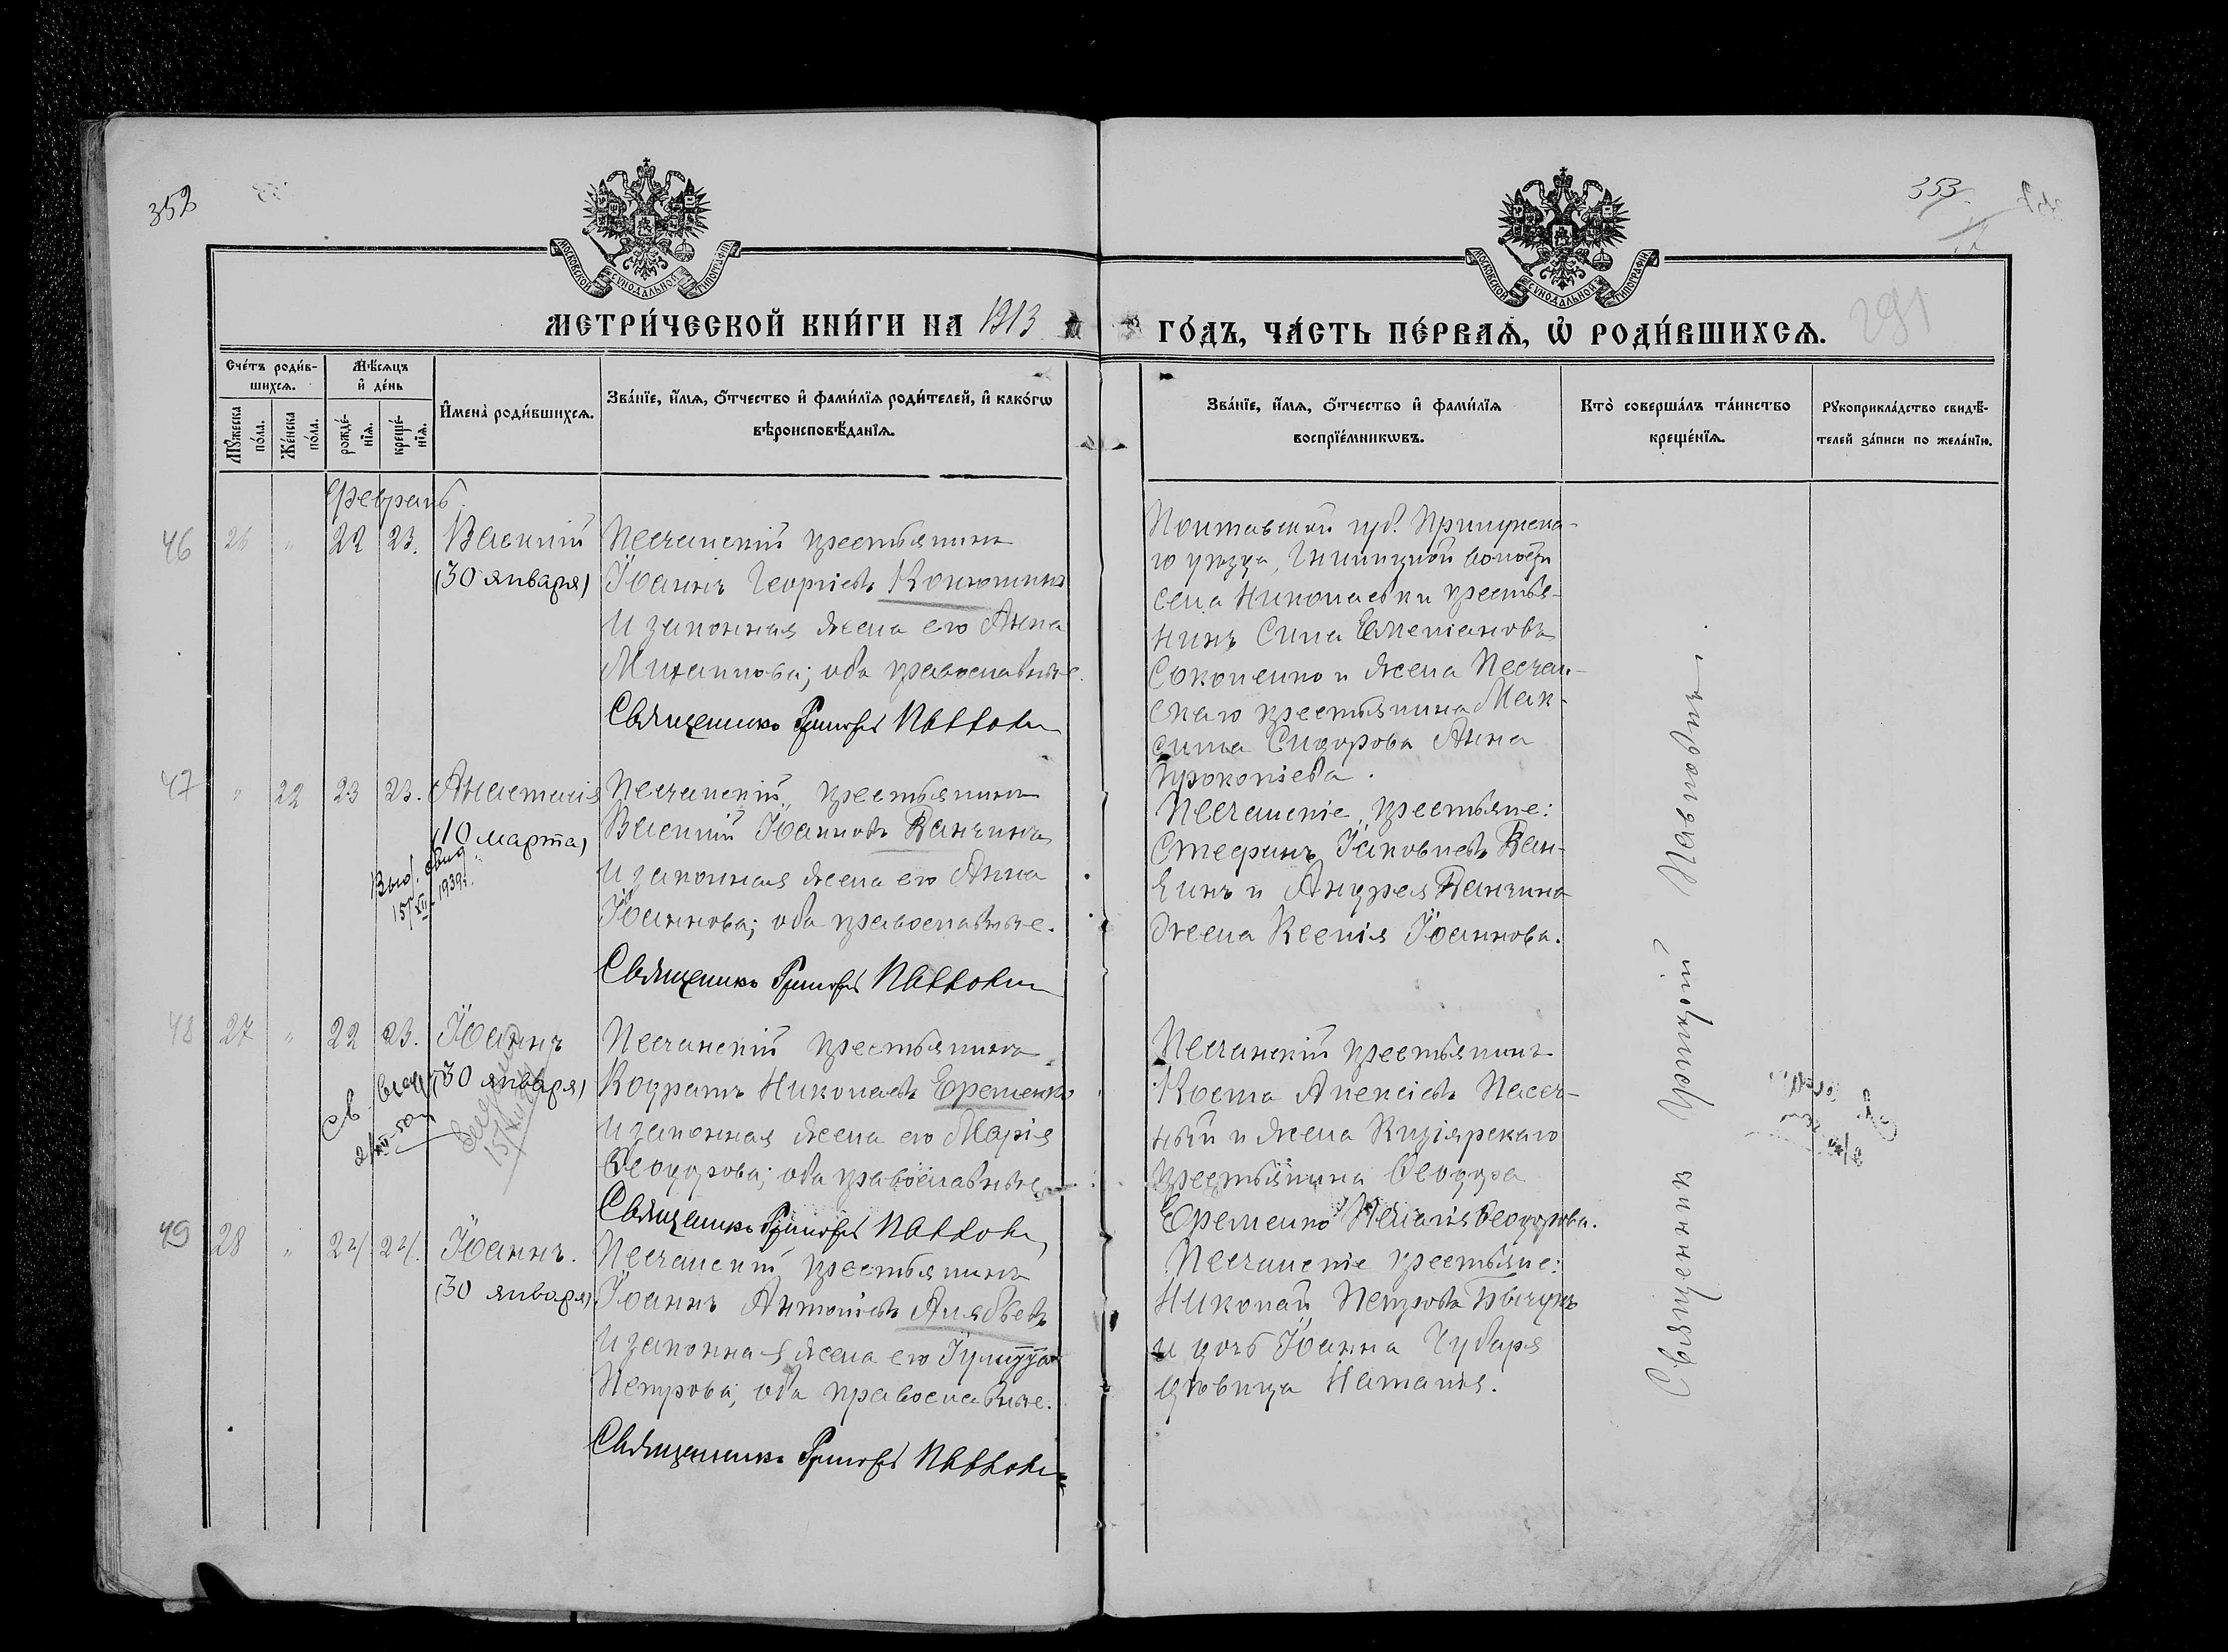 352
353
291
МОСКОВСКОЙ СѴНОДАЛЬНОЙ ТИПОГРАФІИ
МОСКОВСКОЙ СѴНОДАЛЬНОЙ ТИПОГРАФІИ
МЕТРИ́ЧЕСКОЙ КНИ́ГИ НА 1913
ГО́ДЪ, ЧА́СТЬ ПЕ́РВАѦ, Ѽ РОДИ́ВШИХСѦ.
Сче́тъ роди́в-
шихсѧ.
Мѣ́сѧцъ
и҆ де́нь
Мꙋ́жеска
по́ла.
Же́нска
по́ла.
рожде́-
нїѧ.
креще́-
нїѧ.
И҆мена̀ роди́вшихсѧ.
Зва́нїе, и҆́мѧ, ѻ҆́тчество и҆ фами́лїѧ роди́телей, и҆ како́гѡ
вѣроисповѣ́данїѧ.
Зва́нїе, и҆́мѧ, ѻ҆́тчество и҆ фами́лїѧ
воспрїе́мникѡвъ.
Кто̀ соверша́лъ та́инство
креще́нїѧ.
Рꙋкоприкла́дство свидѣ́-
телей за́писи по жела́нїю.
Февраль.
46 26 " 22 23. Василий
(30 января)
Песчанскій крестьянинъ
Іоаннъ Георгіевъ Конюшинъ
и законная жена его Анна
Михаилова; оба православные.
Священникъ Григорій Павловичъ
Полтавской губ. Прилукска-
го уѣзда, Гнилицкой волости
села Николаевки крестья-
нинъ Сила Емеліановъ
Соколенко и жена Песчан-
скаго крестьянина Мак-
сима Сидорова Анна
Прокопіева.
47 " 22 23 23. Анастасія
(10 марта)
Выд. свид.
15/XII 1939г.
Песчанскій крестьянинъ
Василій Іоанновъ Ванчинъ
и законная жена его Анна
Іоаннова; оба православные.
Священникъ Григорій Павловичъ
Песчанскіе крестьяне:
Стефанъ Іаковлевъ Ван-
чинъ и Андрея Ванчина
жена Ксенія Іоаннова.
48 27 " 22 23. Іоаннъ
(30 января)
Песчанскій крестьянинъ
Кодратъ Николаевъ Еременко
и законная жена его Марія
Ѳеодорова; оба православные.
Священникъ Григорій Павловичъ
Песчанскій крестьянинъ
Косма Алексіевъ Пасеч-
ный и жена Кизіярскаго
крестьянина Ѳеодора
Еременко Наталія Ѳеодорова.
49 28 " 24 24. Іоаннъ.
(30 января)
Песчанскій крестьянинъ
Іоаннъ Антоніевъ Алябьевъ
и законная жена его Гликерія
Петрова; оба православные.
Священникъ Григорій Павловичъ
Песчанскіе крестьяне:
Николай Петровъ
и дочь Іоанна Чубаря
дѣвица Наталія.
Священникъ Григорій Павловичъ